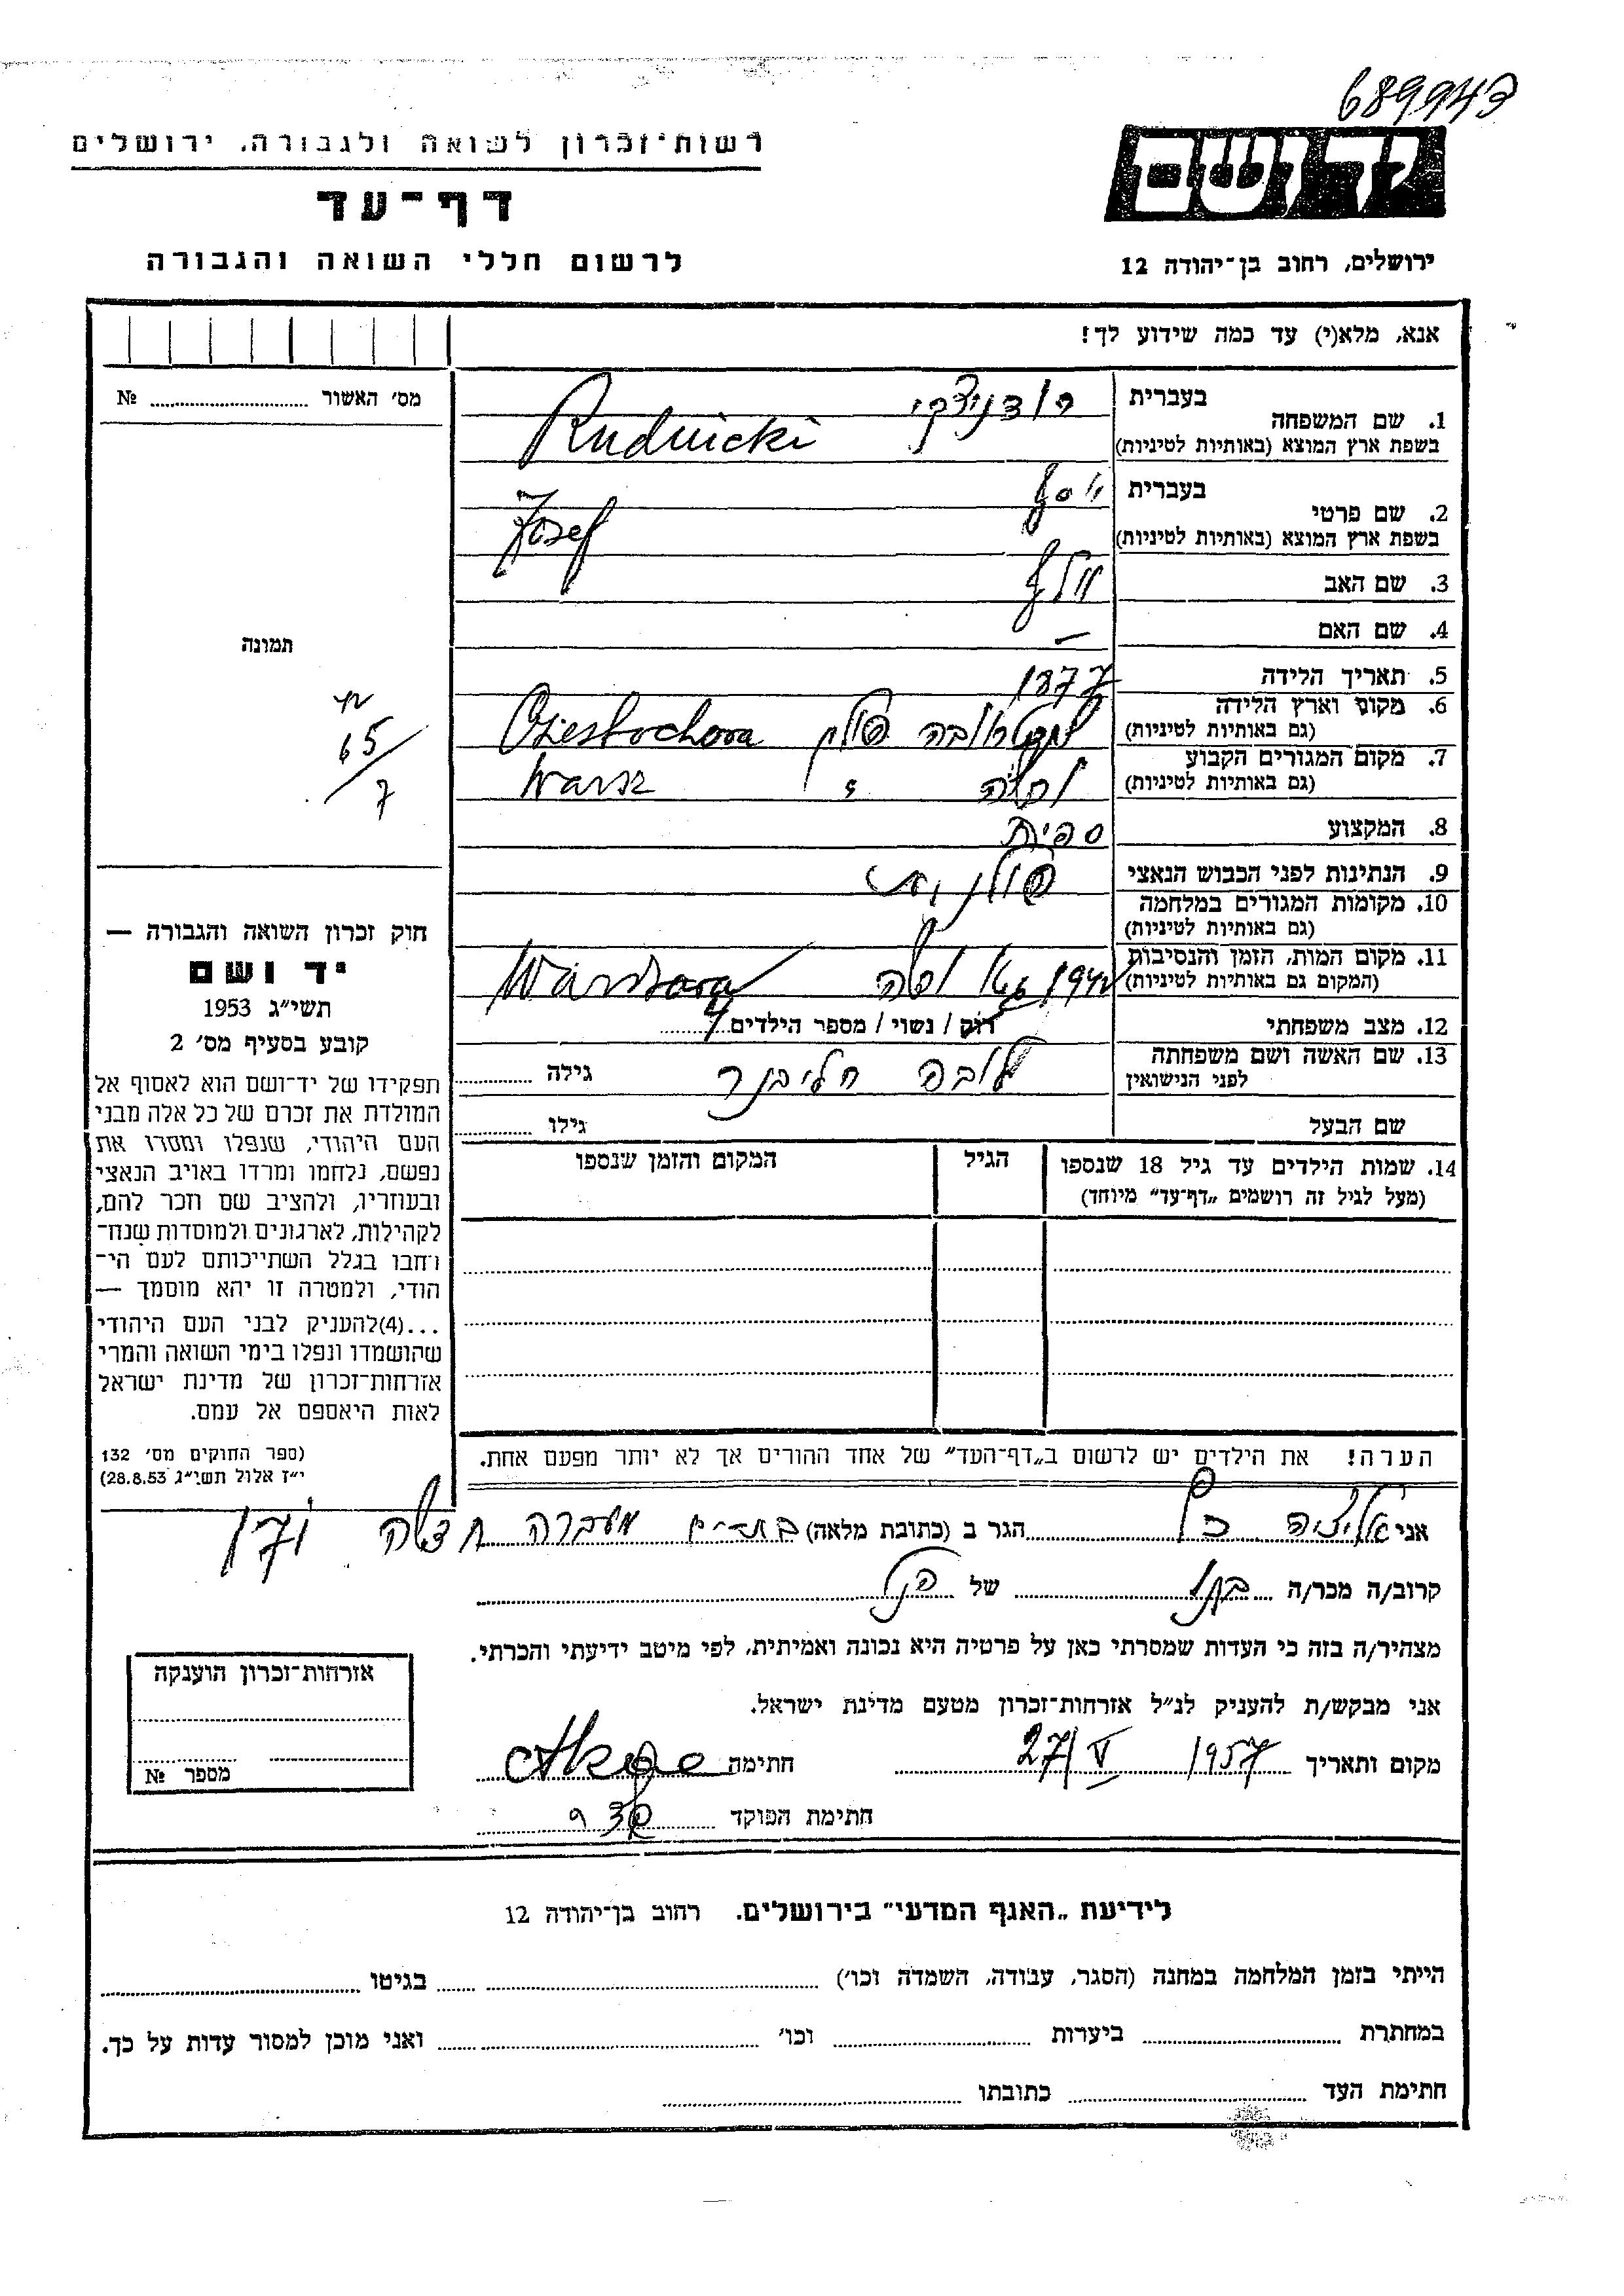 689943
רשות־זכרון לשואה ולגבורה, ירושלים
יד ושם
דף־עד
לרשום חללי השואה והגבורה
ירושלים, רחוב בן־יהודה 12
אנא, מלא(י) עד כמה שידוע לך!
מס׳ האשור № 
1. שם המשפחה בעברית רודניצקי
בשפת ארץ המוצא (באותיות לטיניות) Rudnicki
2. שם פרטי בעברית יוסף
בשפת ארץ המוצא (באותיות לטיניות) Josef
3. שם האב וולף
4. שם האם —
5. תאריך הלידה 1877
6. מקום וארץ הלידה פולין
(גם באותיות לטיניות)
7. מקום המגורים הקבוע ורשה Warsz
(גם באותיות לטיניות)
8. המקצוע
9. הנתינות לפני הכבוש הנאצי פולנית
10. מקומות המגורים במלחמה
(גם באותיות לטיניות)
11. מקום המות, הזמן והנסיבות 1942 גטו ורשה Warszawa
(המקום גם באותיות לטיניות)
12. מצב משפחתי רוק / נשוי / מספר הילדים 4
13. שם האשה ושם משפחתה גילה
לפני הנישואין
שם הבעל גילו
14. שמות הילדים עד גיל 18 שנספו הגיל המקום והזמן שנספו
(מעל לגיל זה רושמים „דף־עד״ מיוחד)
הערה! את הילדים יש לרשום ב„דף־העד״ של אחד ההורים אך לא יותר מפעם אחת.
תמונה
65
7
חוק זכרון השואה והגבורה —
יד ושם
תשי״ג 1953
קובע בסעיף מס׳ 2
תפקידו של יד־ושם הוא לאסוף אל
המולדת את זכרם של כל אלה מבני
העם היהודי, שנפלו ומסרו את
נפשם, נלחמו ומרדו באויב הנאצי
ובעוזריו, ולהציב שם וזכר להם,
לקהילות, לארגונים ולמוסדות שנח־
רבו בגלל השתייכותם לעם הי־
הודי, ולמטרה זו יהא מוסמך —
...(4)להעניק לבני העם היהודי
שהושמדו ונפלו בימי השואה והמרי
אזרחות־זכרון של מדינת ישראל
לאות היאספם אל עמם.
(ספר החוקים מס׳ 132
י״ז אלול תשי״ג 28.8.53)
אני הגר ב (כתובת מלאה) מעברה חדשה
קרוב/ה מכר/ה של
מצהיר/ה בזה כי העדות שמסרתי כאן על פרטיה היא נכונה ואמיתית, לפי מיטב ידיעתי והכרתי.
אני מבקש/ת להעניק לנ״ל אזרחות־זכרון מטעם מדינת ישראל.
מקום ותאריך 27/V 1957 חתימה
חתימת הפוקד
אזרחות־זכרון הוענקה
מספר №
לידיעת „האגף המדעי״ בירושלים. רחוב בן־יהודה 12
הייתי בזמן המלחמה במחנה (הסגר, עבודה, השמדה וכו׳) בגיטו
במחתרת ביערות וכו׳ ואני מוכן למסור עדות על כך.
חתימת העד כתובתו